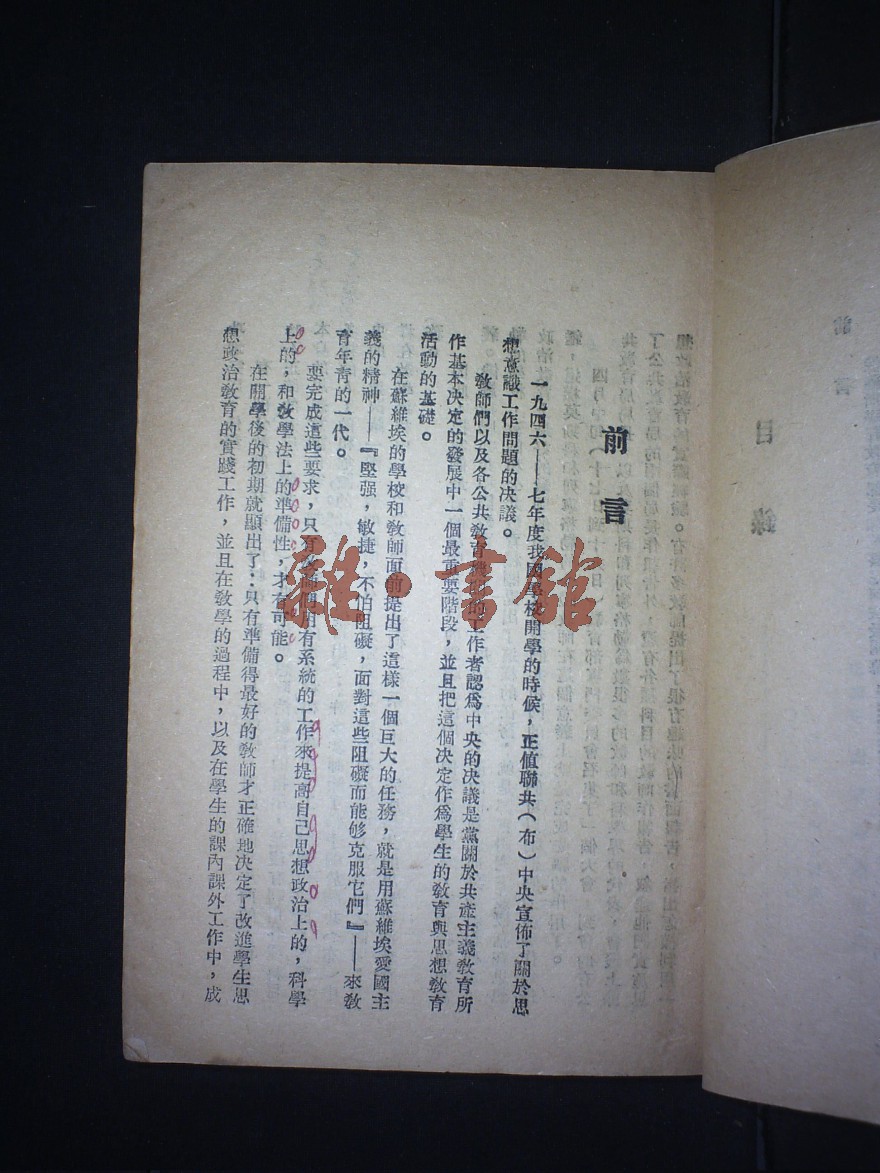 目錄
前言
一九四六——七年度我國學校開學的時候，正值聯共（布）中央宣佈了關於思
想意識工作問題的决議。
教師們以及各公共教育機關的工作者認爲中央的决議是黨關於共產主義教育所
作基本决定的發展中一個最重要階段，並且把這個决定作爲學生的教育與思想教育
活動的基礎。
在蘇維埃的學校和教師面前提出了這樣一個巨大的任務，就是用蘇維埃愛國主
義的精神——『堅强，敏捷，不怕阻礙，面對這些阻礙而能够克服它們』——來教
育年青的一代。
要完成這些要求，只有用有系統的工作來提高自己思想政治上的，科學
上的，和教學法上的準備性，才有可能。
在開學後的初期就顯出了：只有準備得最好的教師才正確地决定了改進學生思
想政治教育的實踐工作，並且在教學的過程中，以及在學生的課內課外工作中，成
雜·書館